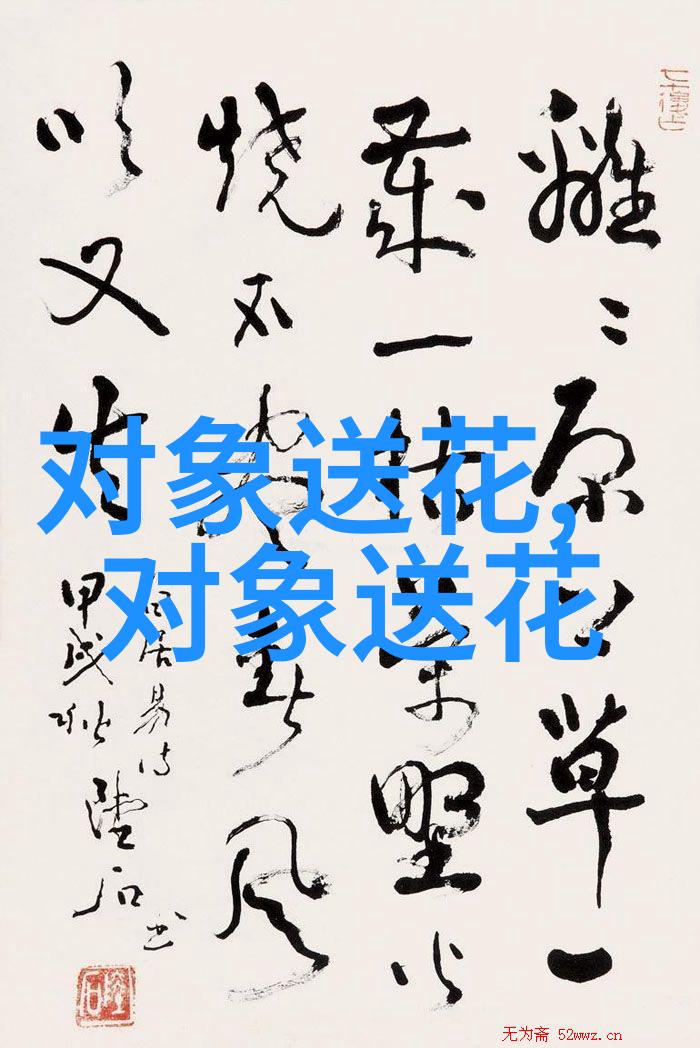 对象送花,
对象送花
離〻原上草一
歲一枯榮野火
烧不盡春风
吹又生
白居易诗
甲戌秋
无为斋 52wwz.cn